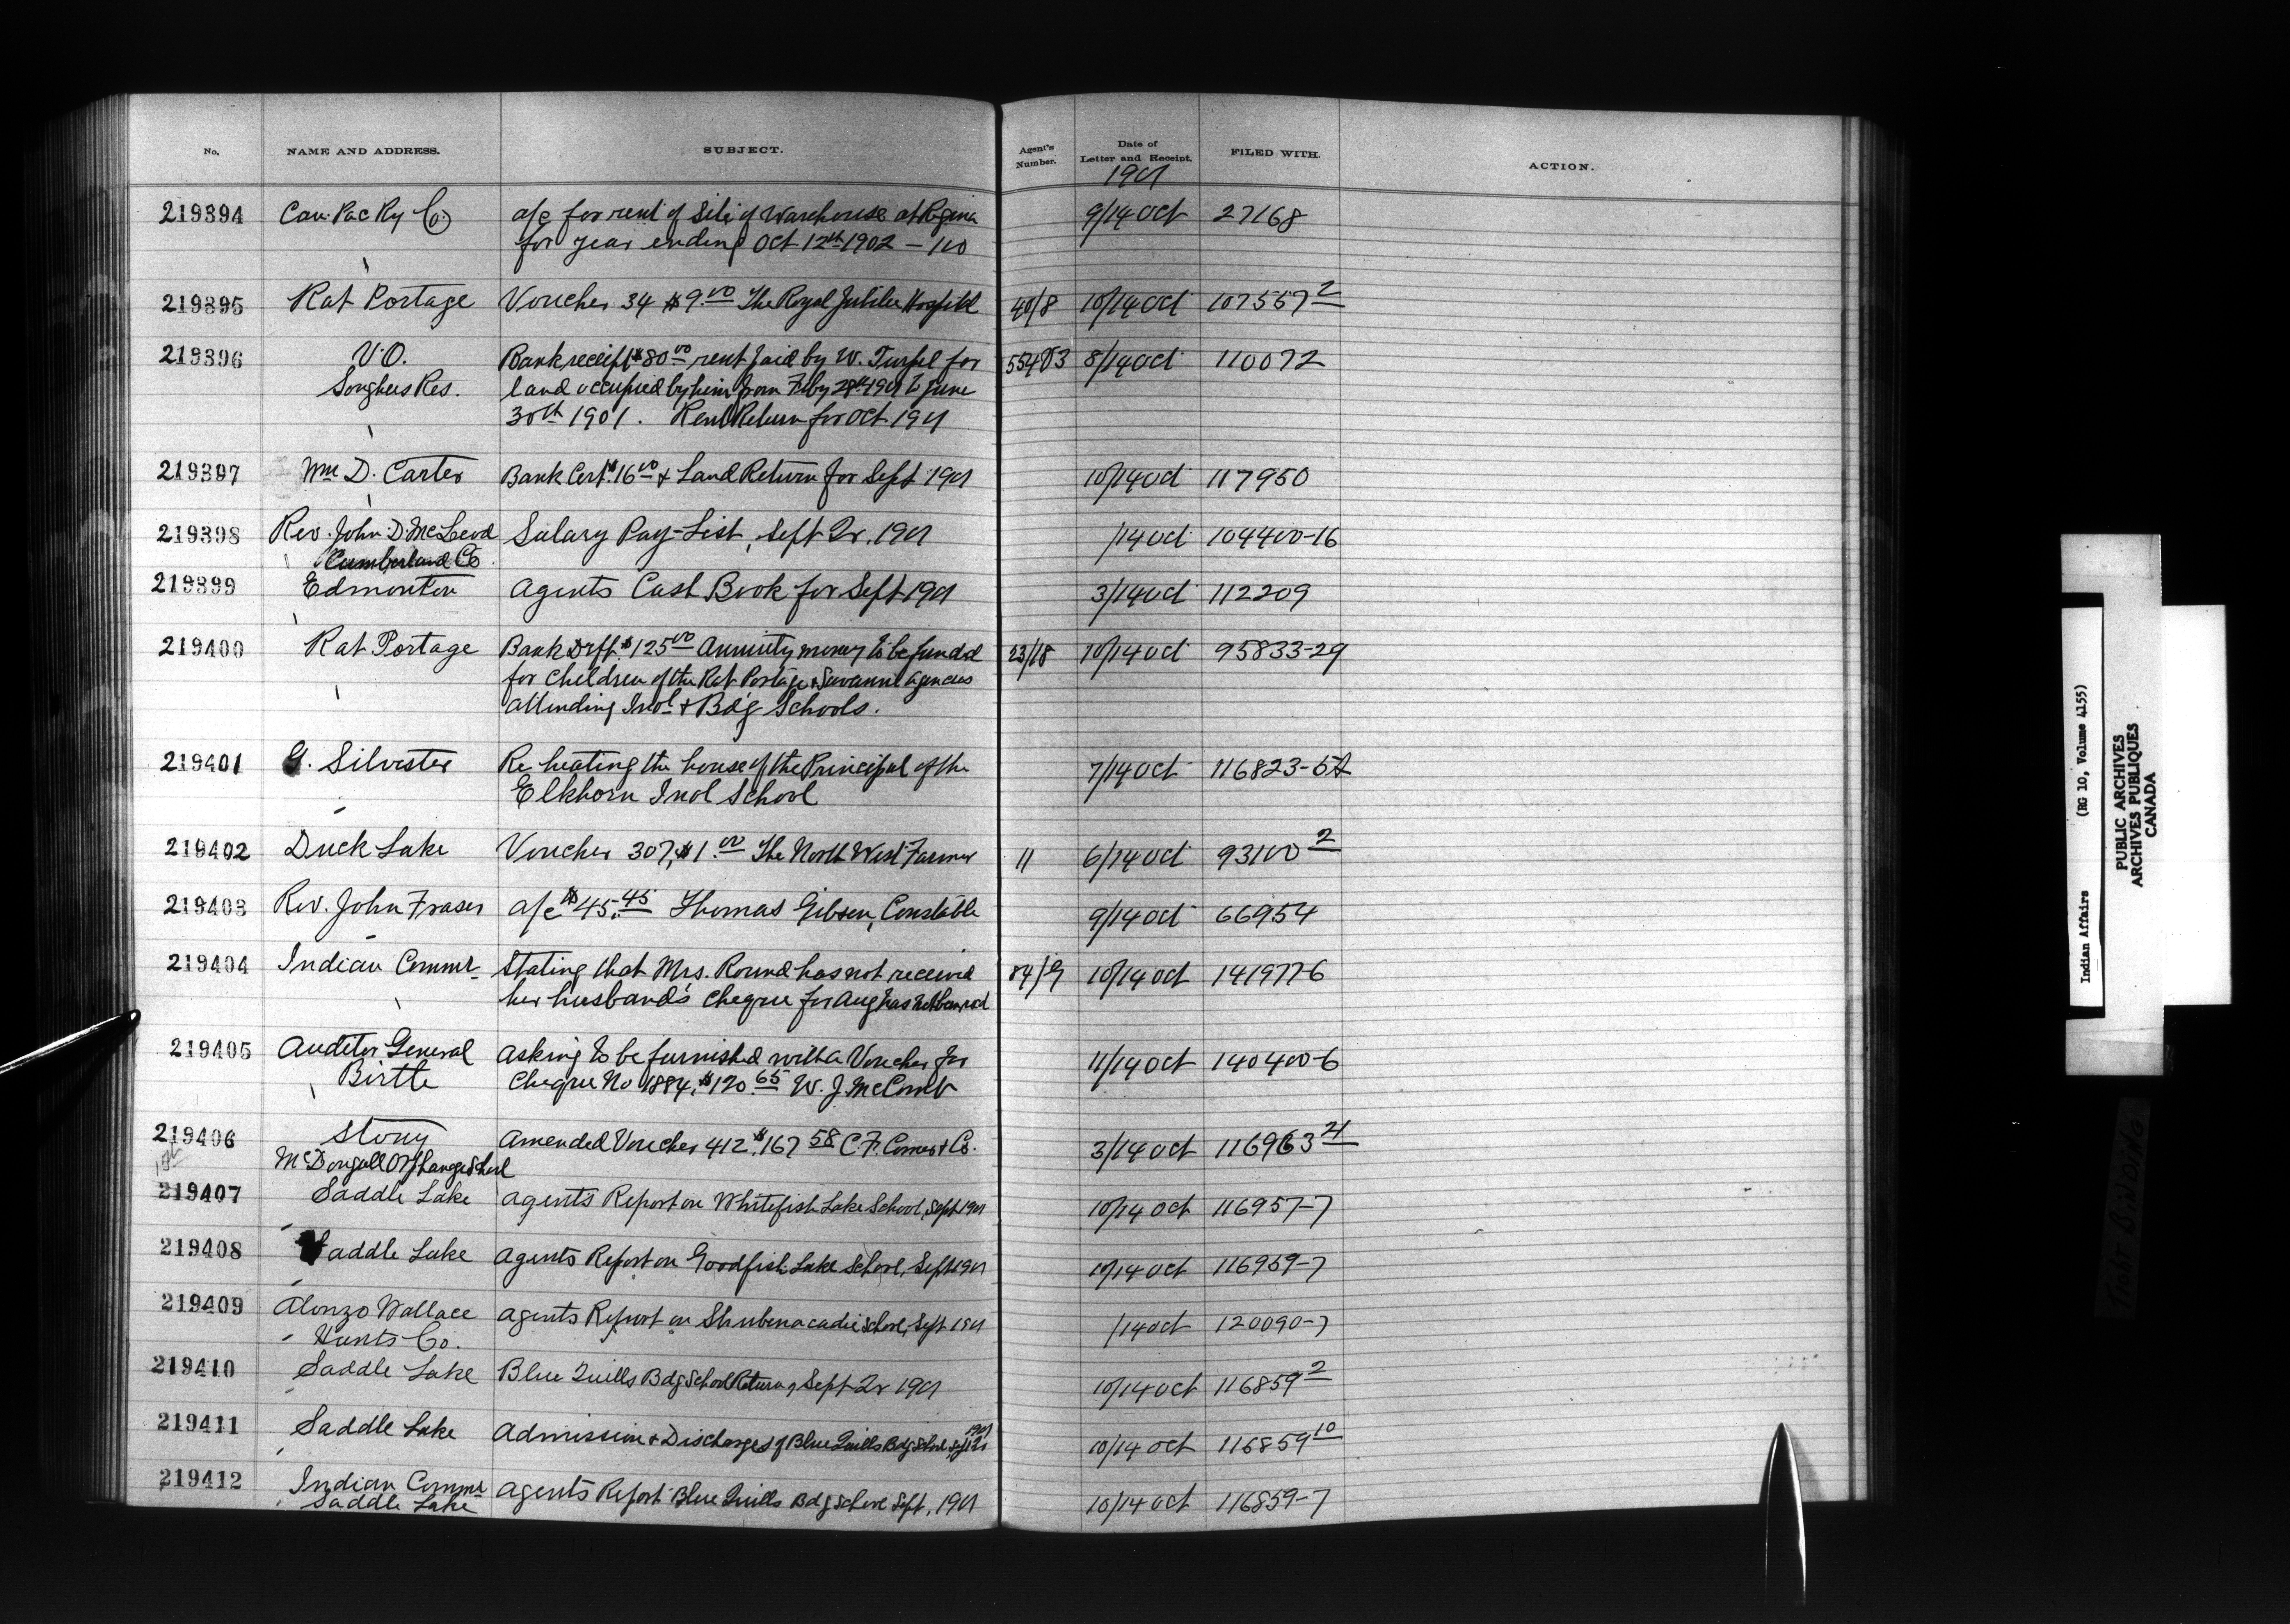 No. NAME AND ADDRESS. SUBJECT. Agent's Number. Date of Letter and Receipt. FILED WITH. ACTION.
1901
219394 Can. Pac Ry Co a/c for rent of Site of Warehouse at Regina 9/14 Oct 27168
for year ending Oct 12th 1902 – 1.00
219395 Rat Portage Voucher 34 $9.00 The Royal Jubilee Hospital 40/8 10/14 Oct 107557 2
219396 V.O. Bank receipt $80.00 rent paid by W. Turpel for 8/14 Oct 110072
Songhees Res. land occupied by him from Feby 28th 1901 to June
30th 1901. Rent Return for Oct 1901
219397 Wm D. Carter Bank Cert. $16.00 & Land Return for Sept 1901 10/14 Oct 117950
219398 Rev. John D. McLeod Salary Pay-List, Sept Qr. 1901 /14 Oct 104400-16
Cumberland Co
219399 Edmonton Agents Cash Book for Sept 1901 3/14 Oct 112209
219400 Rat Portage Bank Drft. $125.00 Annuity money to be funded 23/18 10/14 Oct 95833-29
for children of the Rat Portage & Savanne Agencies
attending Indl & Bdg Schools.
219401 G. Silvester Re heating the house of the Principal of the 7/14 Oct 116823-5A
Elkhorn Indl School
219402 Duck Lake Voucher 307, $1.00 The North West Farmer 11 6/14 Oct 93100 2
219403 Rev. John Fraser a/c $45.45 Thomas Gibson, Constable 9/14 Oct 66954
219404 Indian Commr Stating that Mrs. Round has not received 84/G 10/14 Oct 141977-6
her husband's cheque for Aug has not been recd
219405 Auditor General Asking to be furnished with a Voucher for 11/14 Oct 140400-6
Birtle Cheque No 1884, $120.65 W. J. McComb
219406 Stony Amended Voucher 412, $167.58 C. F. Comer & Co. 3/14 Oct 116963 21
McDougall Orphanage School
219407 Saddle Lake Agent's Report on Whitefish Lake School, Sept 1901 10/14 Oct 116957-7
219408 Saddle Lake Agents Report on Goodfish Lake School, Sept 1901 10/14 Oct 116959-7
219409 Alonzo Wallace Agents Report on Shubenacadie School, Sept 1901 /14 Oct 120090-7
Hants Co.
219410 Saddle Lake Blue Quills Bdg School Return, Sept Qr 1901 10/14 Oct 116859 2
219411 Saddle Lake Admission & Discharges of Blue Quills Bdg School, Sept Qr 1901 10/14 Oct 116859 10
219412 Indian Commr Agents Report Blue Quills Bdg School Sept, 1901 10/14 Oct 116859-7
Saddle Lake
Indian Affairs (RG 10, Volume 4155)
PUBLIC ARCHIVES
ARCHIVES PUBLIQUES
CANADA
TIGHT BINDING